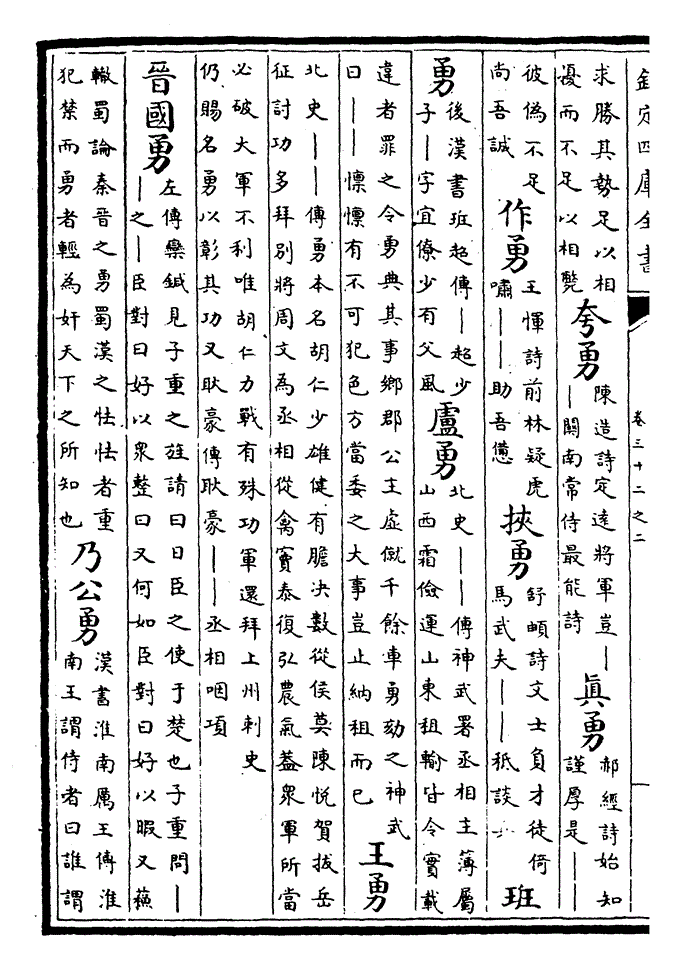 欽定四庫全書 卷三十二之二
求勝其勢足以相
擾而不足以相斃
夸勇
陳造詩定逹將軍豈—
—闗南常侍最能詩
眞勇
郝經詩始知
謹厚是——
彼偽不足
尚吾誠
作勇
王惲詩前林疑虎
嘯——助吾憊
挾勇
舒頔詩文士負才徒倚
馬武夫——秖談兵
班
勇
後漢書班超傳—超少
子—字宜僚少有父風
盧勇
北史——傳神武署丞相主薄屬
山西霜儉運山東租輸皆令實載
違者罪之令勇典其事鄉郡公主虚僦千餘車勇劾之神武
曰——懍懍有不可犯色方當委之大事豈止納租而已
王勇
北史——傳勇本名胡仁少雄健有膽决數從侯莫陳悦賀拔岳
征討功多拜别將周文為丞相從禽竇泰復弘農氣蓋衆軍所當
必破大軍不利唯胡仁力戰有殊功軍還拜上州刺史
仍賜名勇以彰其功又耿豪傳耿豪——丞相咽項
晉國勇
左傳欒鍼見子重之旌請曰日臣之使于楚也子重問—
—之—臣對曰好以衆整曰又何如臣對曰好以暇又蘇
轍蜀論秦晉之勇蜀漢之怯怯者重
犯禁而勇者輕為奸天下之所知也
乃公勇
漢書淮南厲王傳淮
南王謂侍者曰誰謂